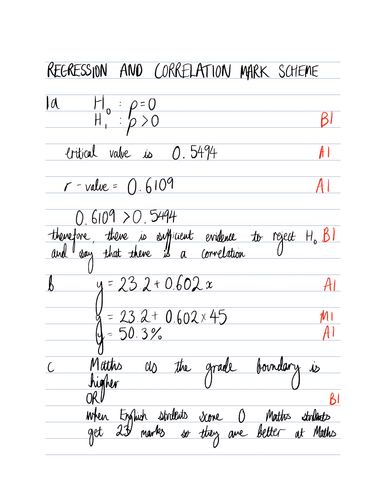 REGRESSION AND CORRELATION MARK SCHEME
1a H₀ : ρ=0
H₁ : ρ>0 B1
Critical value is 0.5494 A1
r-value = 0.6109 A1
0.6109 > 0.5494
therefore, there is sufficient evidence to reject H₀ B1
and say that there is a correlation
b y = 23.2 + 0.602x A1
y = 23.2 + 0.602 x 45 M1
y = 50.3% A1
c Maths as the grade boundary is
higher
OR B1
when English students score 0 Maths students
get 23 marks so they are better at Maths